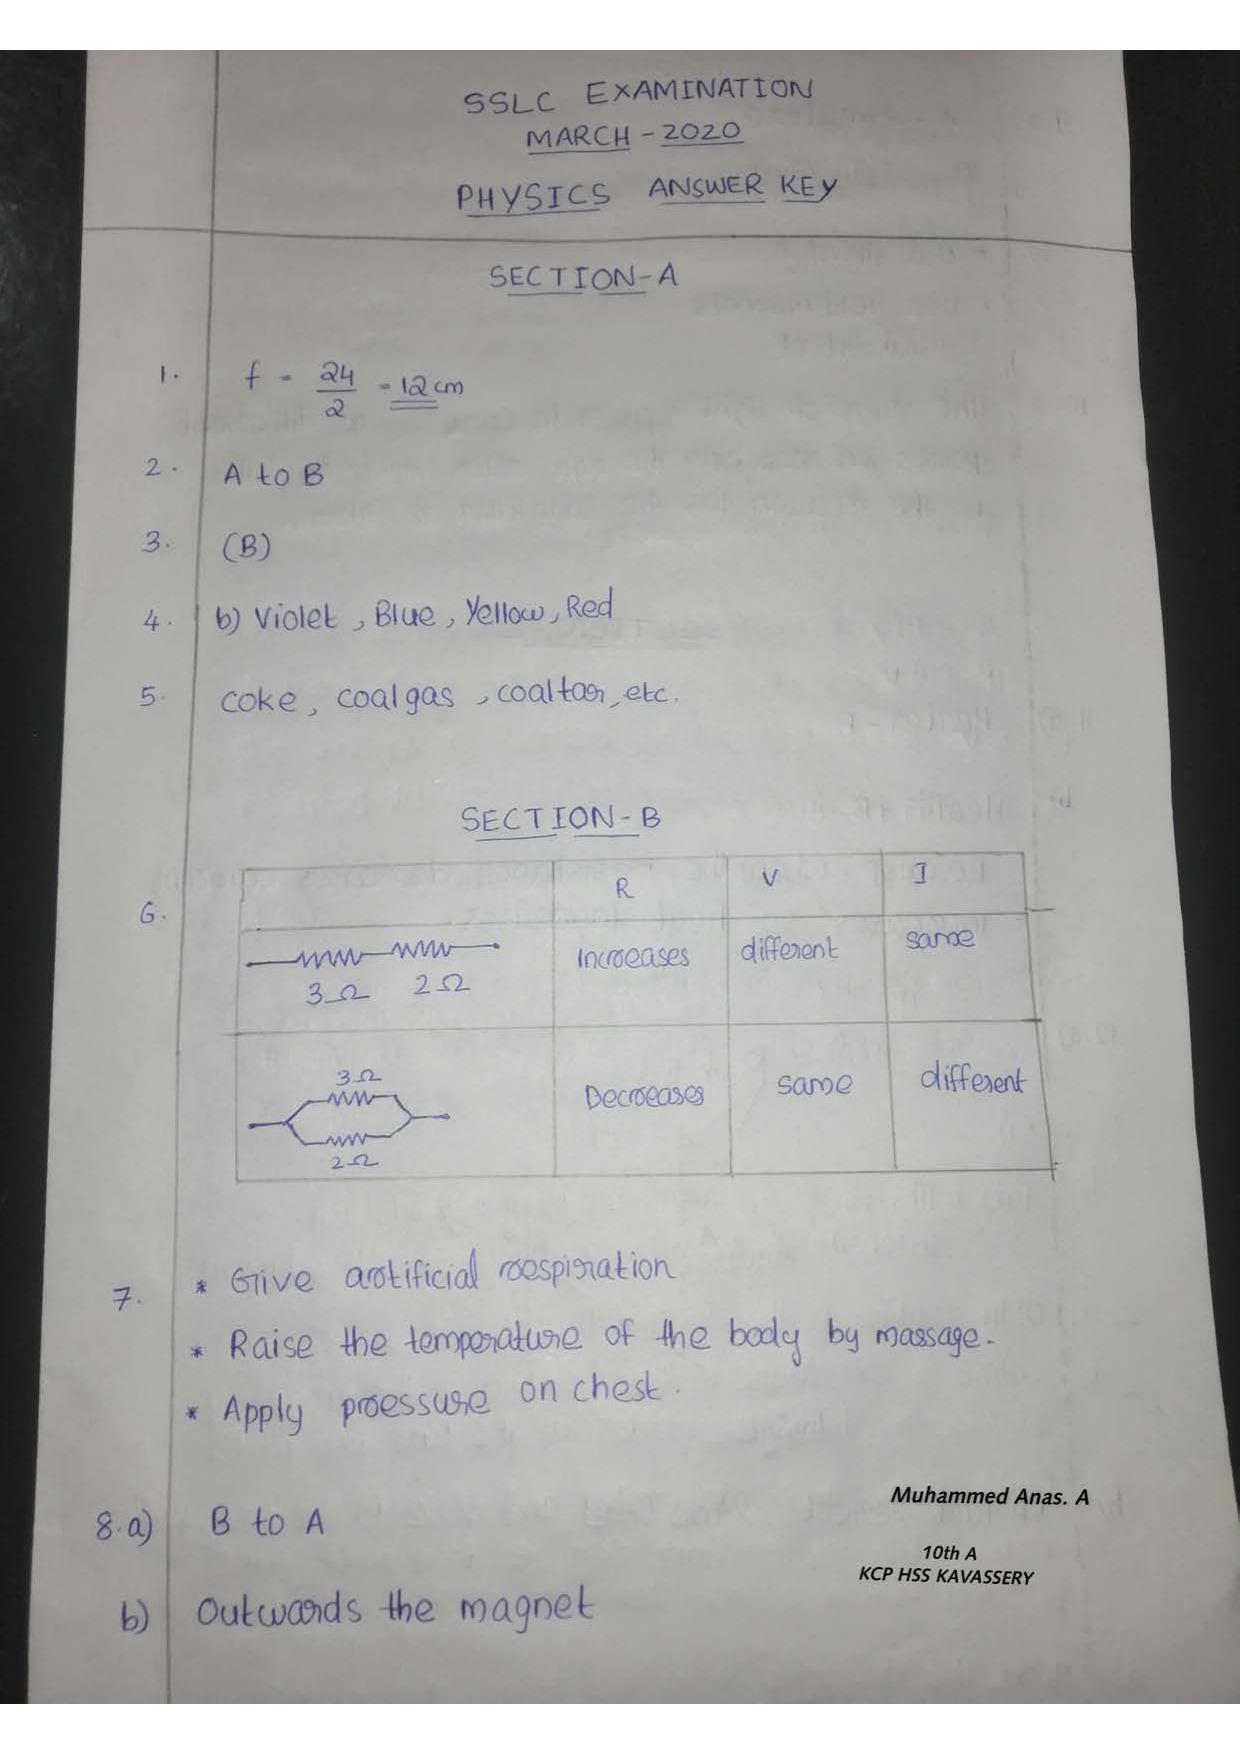 SSLC EXAMINATION
MARCH - 2020
PHYSICS ANSWER KEY
SECTION-A
1. f = 24/2 = 12 cm
2. A to B
3. (B)
4. b) Violet, Blue, Yellow, Red
5. coke, coal gas, coaltar, etc.
SECTION-B
6.
R V I
3Ω 2Ω Increases different same
3Ω
2Ω Decreases same different
7. * Give artificial respiration
* Raise the temperature of the body by massage.
* Apply pressure on chest.
8.a) B to A
b) Outwards the magnet
Muhammed Anas. A
10th A
KCP HSS KAVASSERY